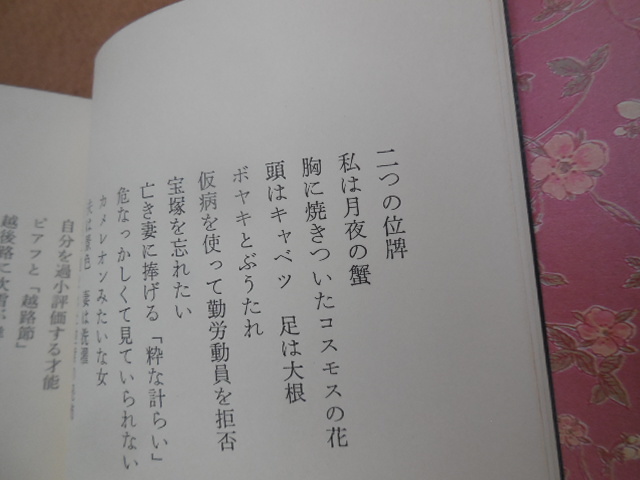 二つの位牌
私は月夜の蟹
胸に焼きついたコスモスの花
頭はキャベツ 足は大根
ボヤキとぶうたれ
仮病を使って勤労動員を拒否
宝塚を忘れたい
亡き妻に捧げる「粋な計らい」
危なっかしくて見ていられない
カメレオンみたいな女
自分を過小評価する才能
ピアフと「越路節」
越後路に吹雪